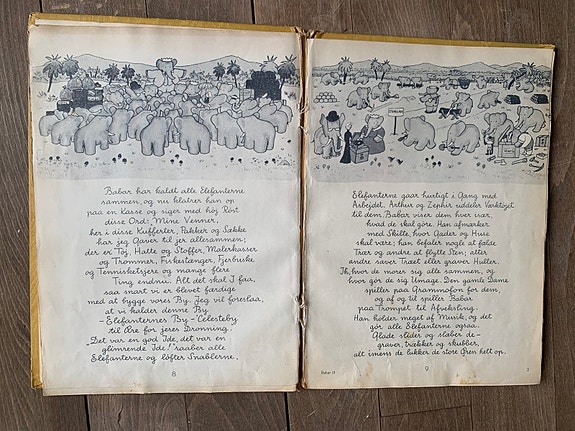 Babar har kaldt alle Elefanterne
sammen, og nu klatrer han op
paa en Kasse og siger med høj Röst
disse Ord: „Mine Venner,
her i disse Kufferter, Pakker og Sække
har jeg Gaver til jer allesammen;
der er Tøj, Hatte og Stoffer, Malerkasser
og Trommer, Fiskestænger, Fjerbuske
og Tennisketsjere og mange flere
Ting endnu. Alt det skal I faa,
saa snart vi er blevet færdige
med at bygge vores By. Jeg vil foreslaa,
at vi kalder denne By
- Elefanternes By - Celesteby
til Ære for jeres Dronning."
„Det var en god Ide, det var en
glimrende Ide!" raaber alle
Elefanterne og løfter Snablerne.
8
Elefanterne gaar hurtigt i Gang med
Arbejdet. Arthur og Zephir uddeler Værktøjet
til dem. Babar viser dem hver især,
hvad de skal göre. Han afmærker
med Skilte, hvor Gader og Huse
skal være; han befaler nogle at fælde
Træer og andre at flytte Sten; atter
andre saver Træet eller graver Huller.
Ih, hvor de morer sig alle sammen, og
hvor gör de sig Umage. Den gamle Dame
spiller paa Grammofon for dem,
og af og til spiller Babar
paa Trompet til Afveksling.
Han holder meget af Musik, og det
gör alle Elefanterne ogsaa.
Glade slider og slæber de-
graver, trækker og skubber,
alt imens de lukker de store Ören helt op.
9